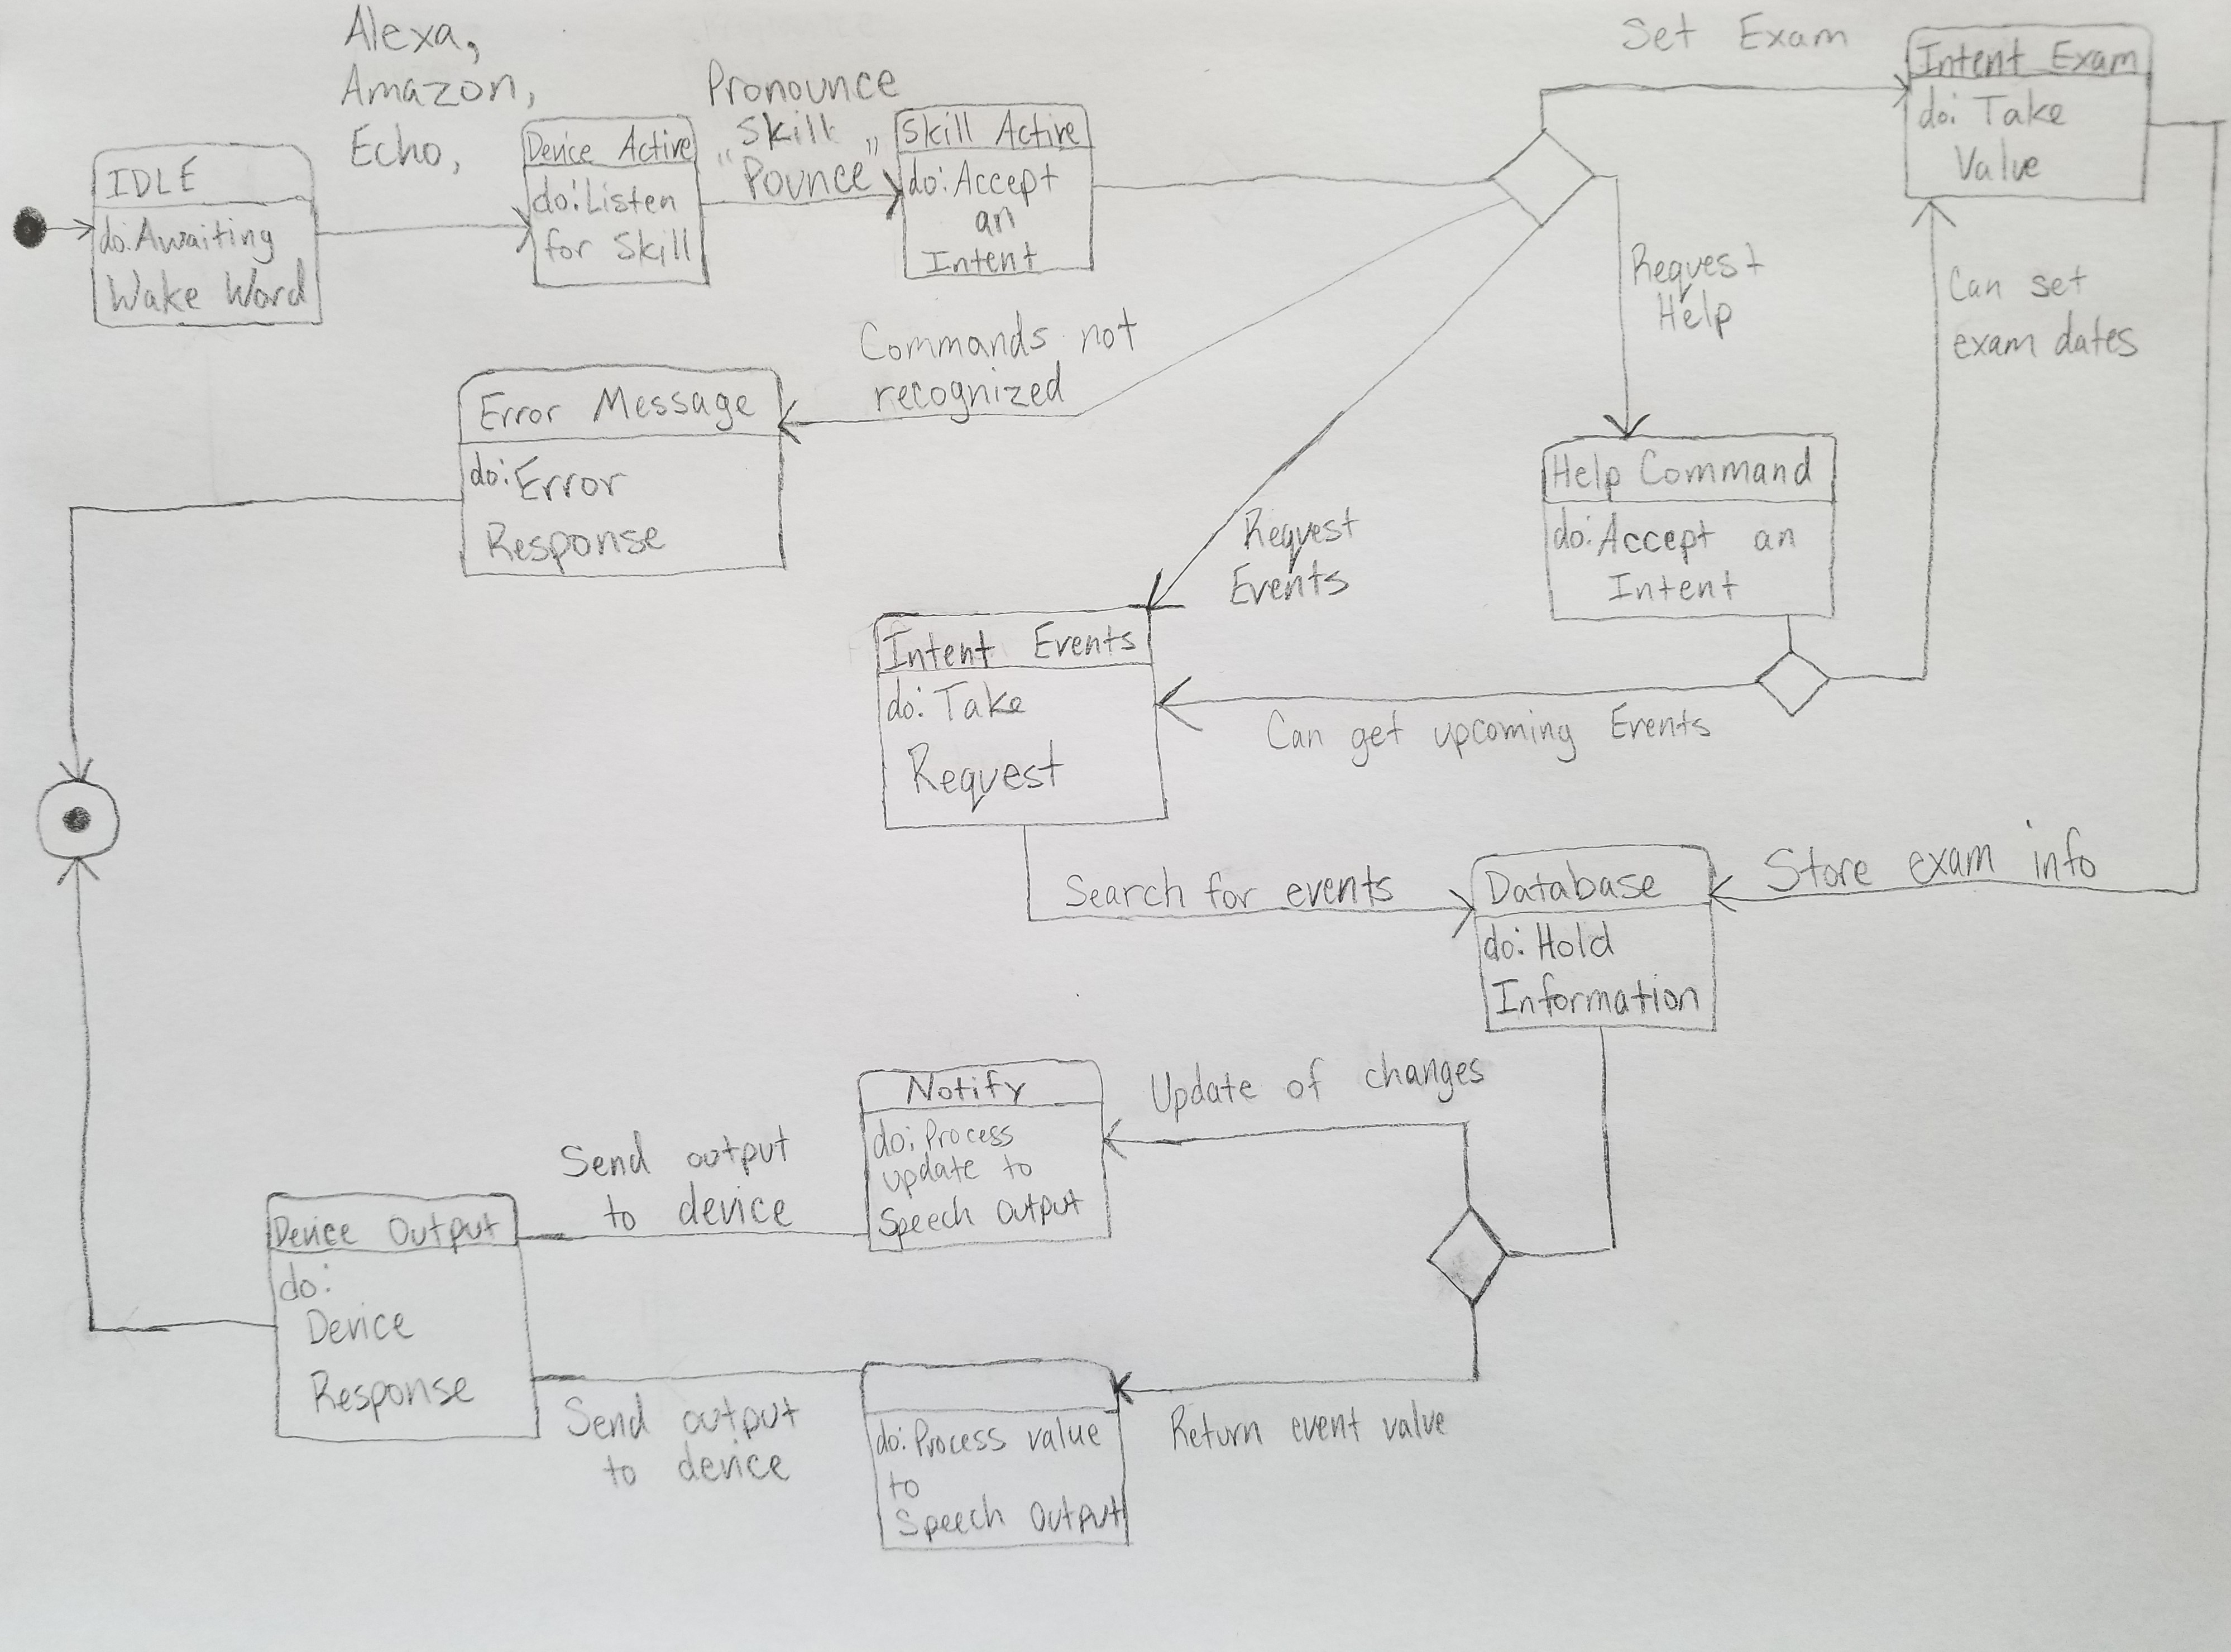 Alexa,
Amazon,
Echo,
IDLE
do: Awaiting
Wake Word
Device Active
do: Listen
for Skill
Pronounce
Skill
"Pounce"
Skill Active
do: Accept
an
Intent
Set Exam
Intent Exam
do: Take
Value
Request
Help
Can set
exam dates
Commands not
recognized
Error Message
do: Error
Response
Help Command
do: Accept an
Intent
Request
Events
Intent Events
do: Take
Request
Can get upcoming Events
Search for events
Database
do: Hold
Information
Store exam info
Update of changes
Notify
do: Process
update to
Speech Output
Send output
to device
Device Output
do:
Device
Response
Send output
to device
do: Process value
to
Speech Output
Return event value